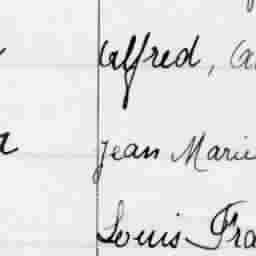 Alfred,
Jean Marie
Louis